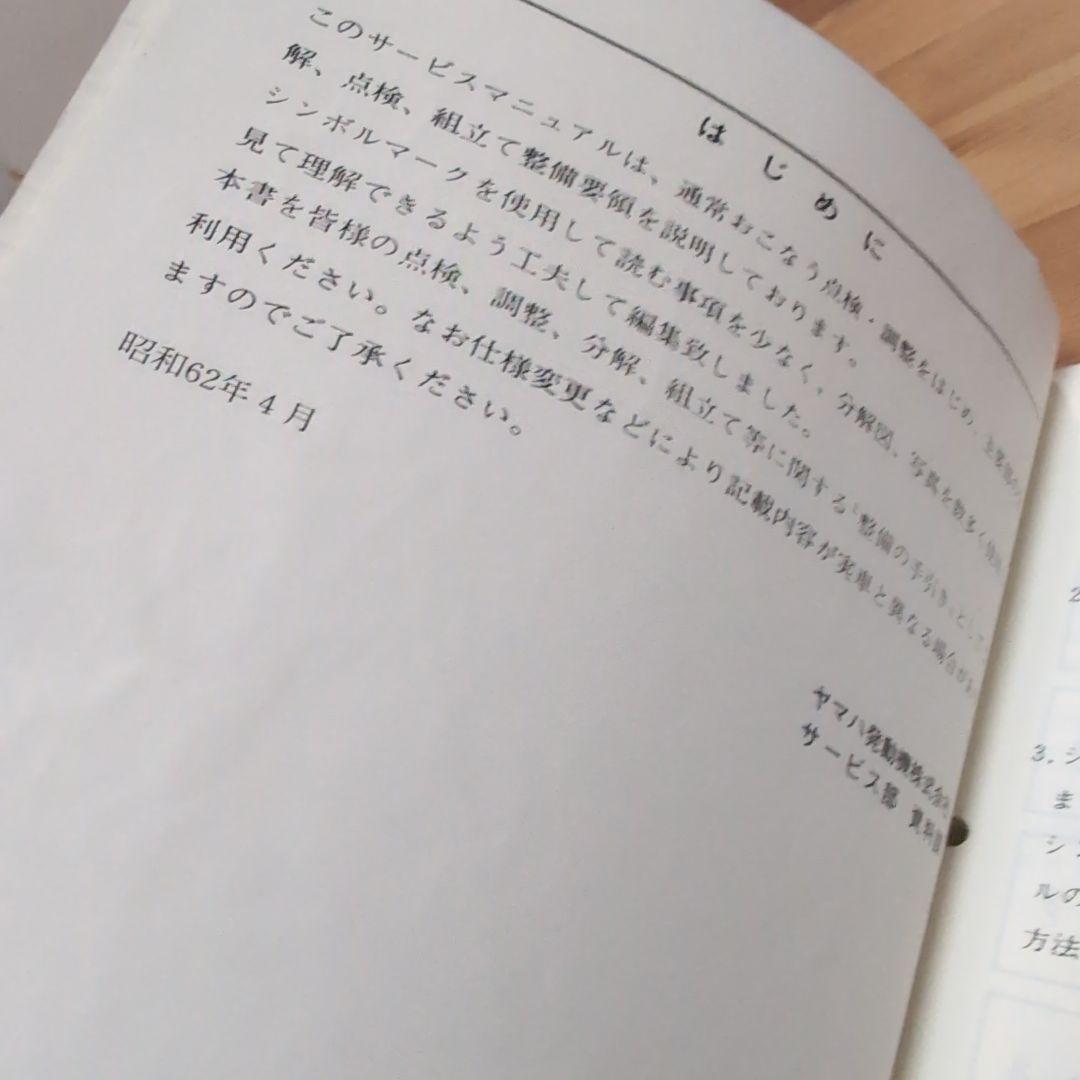 はじめに
このサービスマニュアルは、通常おこなう点検・調整をはじめ、主要部の
解、点検、組立て整備要領を説明しております。
シンボルマークを使用して読む事項を少なく、分解図、写真を数多く使用
見て理解できるよう工夫して編集致しました。
本書を皆様の点検、調整、分解、組立て等に関する「整備の手引き」として
利用ください。なお仕様変更などにより記載内容が実車と異なる場合が
ますのでご了承ください。
昭和62年4月
ヤマハ発動機株式会社
サービス部 資料課
3.シ
ま
シ
ルの
方法